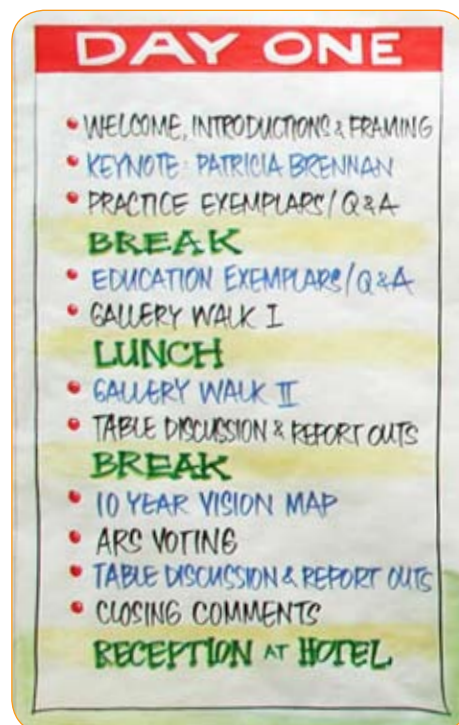 DAY ONE
• WELCOME, INTRODUCTIONS & FRAMING
• KEYNOTE: PATRICIA BRENNAN
• PRACTICE EXEMPLARS/Q&A
BREAK
• EDUCATION EXEMPLARS/Q&A
• GALLERY WALK I
LUNCH
• GALLERY WALK II
• TABLE DISCUSSION & REPORT OUTS
BREAK
• 10 YEAR VISION MAP
• ARS VOTING
• TABLE DISCUSSION & REPORT OUTS
• CLOSING COMMENTS
RECEPTION AT HOTEL